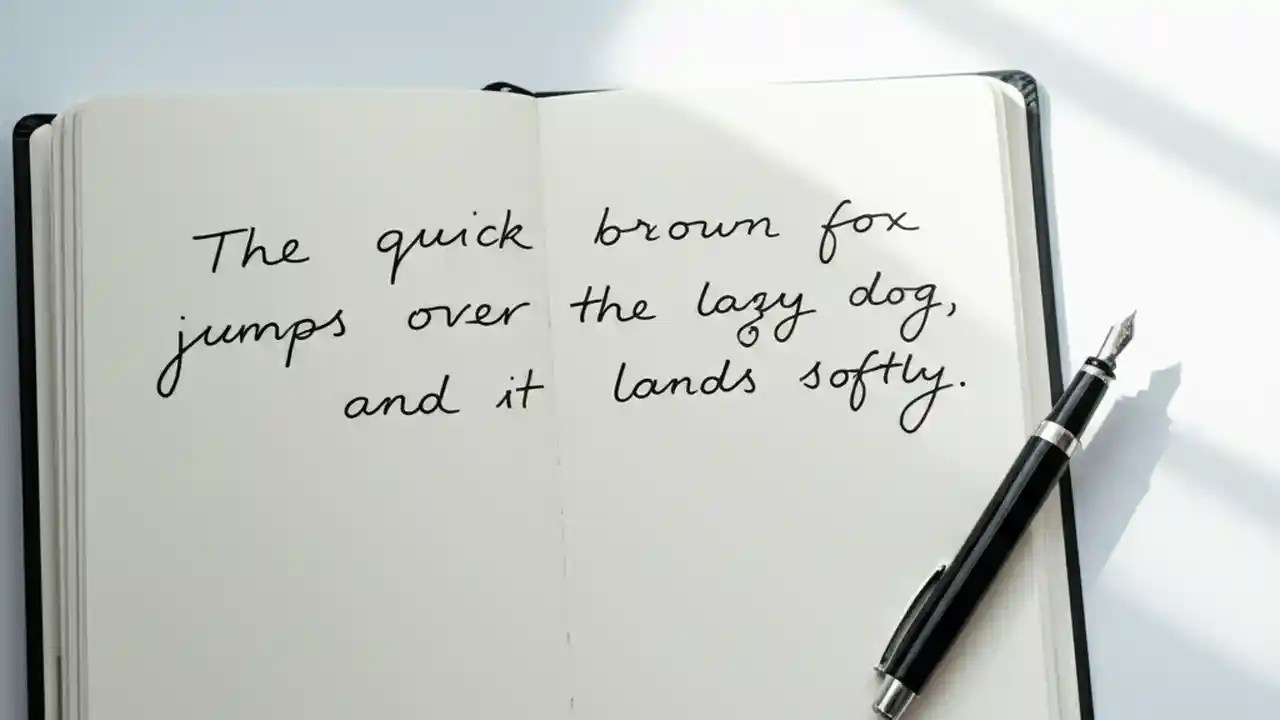 The quick brown fox
jumps over the lazy dog,
and it lands softly.